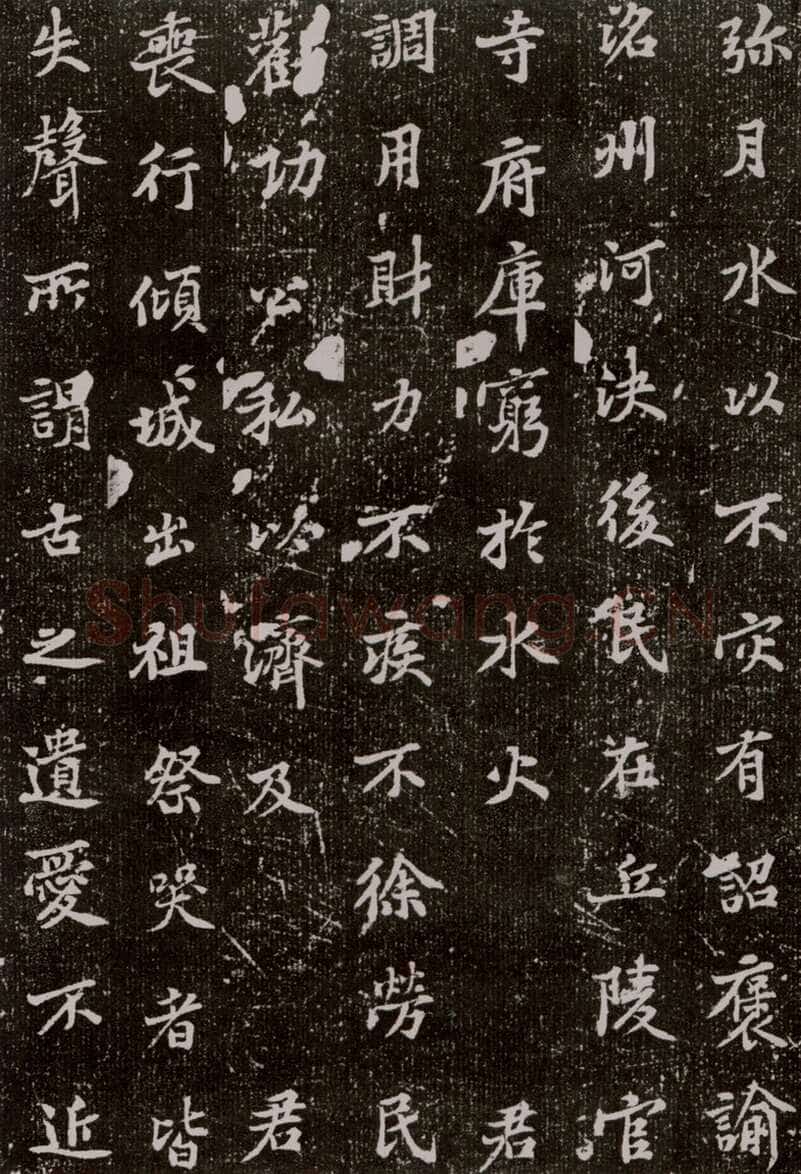 弥月水以不灾有詔褒諭
洺州河決後民在丘陵官
寺府庫窮於水火君
調用財力不疾不徐勞民
勸功公私以濟及君
喪行傾城出祖祭哭者皆
失聲所謂古之遺愛不近
Shufawang.CN